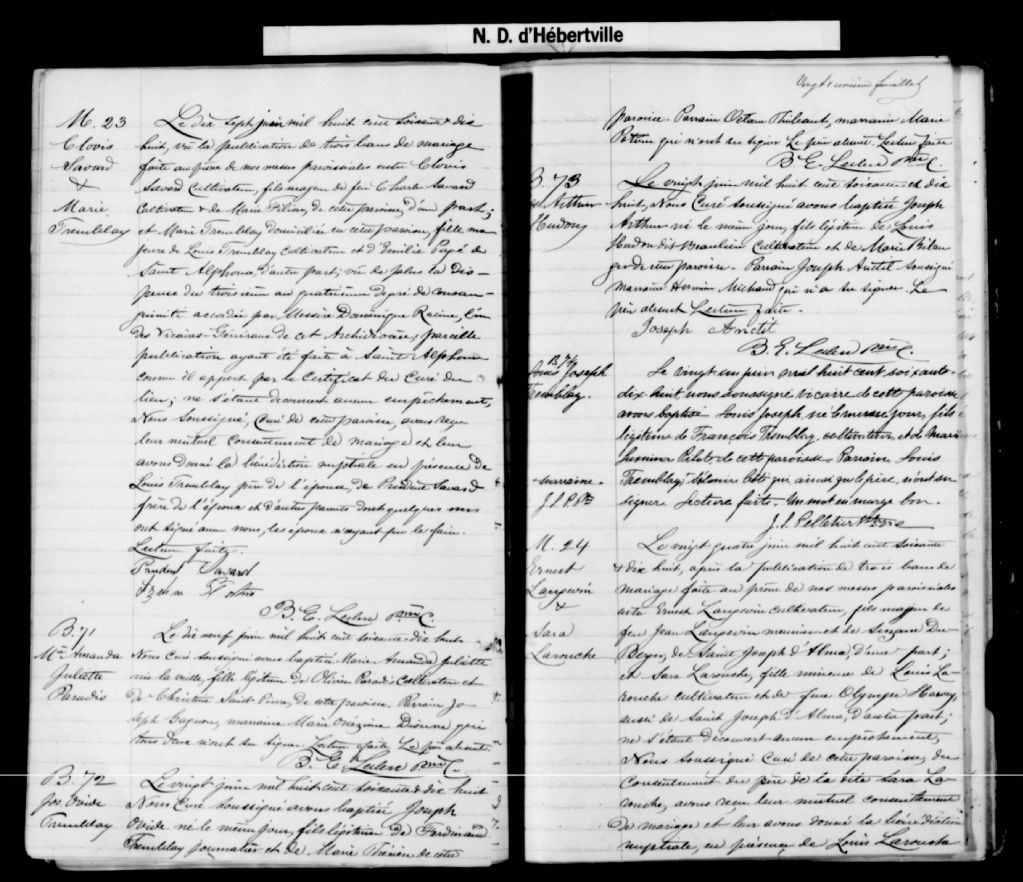 N. D. d'Hébertville
M. 23
Clovis
Savard
&
Marie
Tremblay
Le dix sept juin mil huit cent soixante & dix
huit, vu la publication de trois bans de mariage
faite au prône de nos messes paroissiales entre Clovis
Savard Cultivateur, fils majeur de feu Charles Savard
Cultivateur & de Marie Pilion, de cette paroisse, d'une part;
et Marie Tremblay domiciliée en cette paroisse, fille ma
jeure de Louis Tremblay Cultivateur et d'Emilie Pagé de
Saint Alphonse, d'autre part; vu de plus la Dis-
pense du troisième au quatrième degré de consan-
guinité accordée par Messire Dominique Racine, l'un
des Vicaires-Généraux de cet Archidiocèse; pareille
publication ayant été faite à Saint Alphonse
comme il appert par le Certificat du Curé du
lieu; ne s'étant découvert aucun empêchement,
Nous Soussigné, Curé de cette paroisse, avons reçu
leur mutuel Consentement de mariage et leur
avons donné la bénédiction nuptiale en présence de
Louis Tremblay père de l'épouse, de Prudent Savard
frère de l'époux et d'autres parents dont quelques uns
ont signé avec nous, les époux n'ayant pu le faire.
Lecture faite.
Prudent Savard
B. E. Leclerc Ptre C.
B. 71
Mie Amanda
Juliette
Paradis
Le dix neuf juin mil huit cent soixante dix huit
Nous Curé soussigné avons baptisé Marie Amanda Juliette
née la veille, fille légitime de Olivier Paradis Cultivateur et
de Christine Saint Pierre, de cette paroisse. Parrain Jo-
seph Gagnon, marraine Marie Onézime Dionne qui
tous deux n'ont su signer. Lecture faite. Le père absent.
B. E. Leclerc Ptre C.
B. 72
Jos. Ovide
Tremblay
Le vingt juin mil huit cent soixante & dix huit
Nous Curé soussigné avons baptisé Joseph
Ovide né le même jour, fils légitime de Ferdinand
Tremblay journalier et de Marie Thérien de cette
Vingt & unième feuillet
paroisse. Parrain Octave Thibeault, marraine Marie
Potvin qui n'ont su signer. Le père absent. Lecture faite
B. E. Leclerc Ptre C.
B. 73
Jos Arthur
Hudon
Le vingt juin mil huit cent soixante et dix
huit, Nous Curé soussigné avons baptisé Joseph
Arthur né le même jour, fils légitime de Louis
Hudon dit Beaulieu Cultivateur et de Marie Bélan
ger de cette paroisse. Parrain Joseph Anctil soussigné
marraine Hermine Michaud qui n'a su signer. Le
père absent Lecture faite.
Joseph Anctil
B. E. Leclerc Ptre C.
B. 74
Louis Joseph
Tremblay.
Le vingt un juin mil huit cent soixante-
dix-huit, nous soussigné vicaire de cette paroisse
avons baptisé Louis Joseph, né le même jour, fils
légitime de François Tremblay, cultivateur, et de Marie
de cette paroisse. Parrain Louis
Tremblay qui, ainsi que le père, n'ont su
signer. Lecture faite. Un mot en marge bon.
marraine.
J. S. P. Ptre
J. S. Pelletier Ptre
M. 24
Ernest
Langevin
&
Sara
Larouche
Le vingt quatre juin mil huit cent soixante
& dix huit, après la publication de trois bans de
mariage faite au prône de nos messes paroissiales
entre Ernest Langevin cultivateur, fils majeur de
feu Jean Langevin meunier et de Suzanne Du
Berger, de Saint Joseph d'Alma, d'une part;
et Sara Larouche, fille mineure de Louis La-
rouche cultivateur et de feue Olympe Harvey,
aussi de Saint Joseph d'Alma, d'autre part;
ne s'étant découvert aucun empêchement,
Nous Soussigné Curé de cette paroisse, du
Consentement du père de la dite Sara La-
rouche, avons reçu leur mutuel consentement
de mariage et leur avons donné la bénédiction
nuptiale, en présence de Louis Larouche